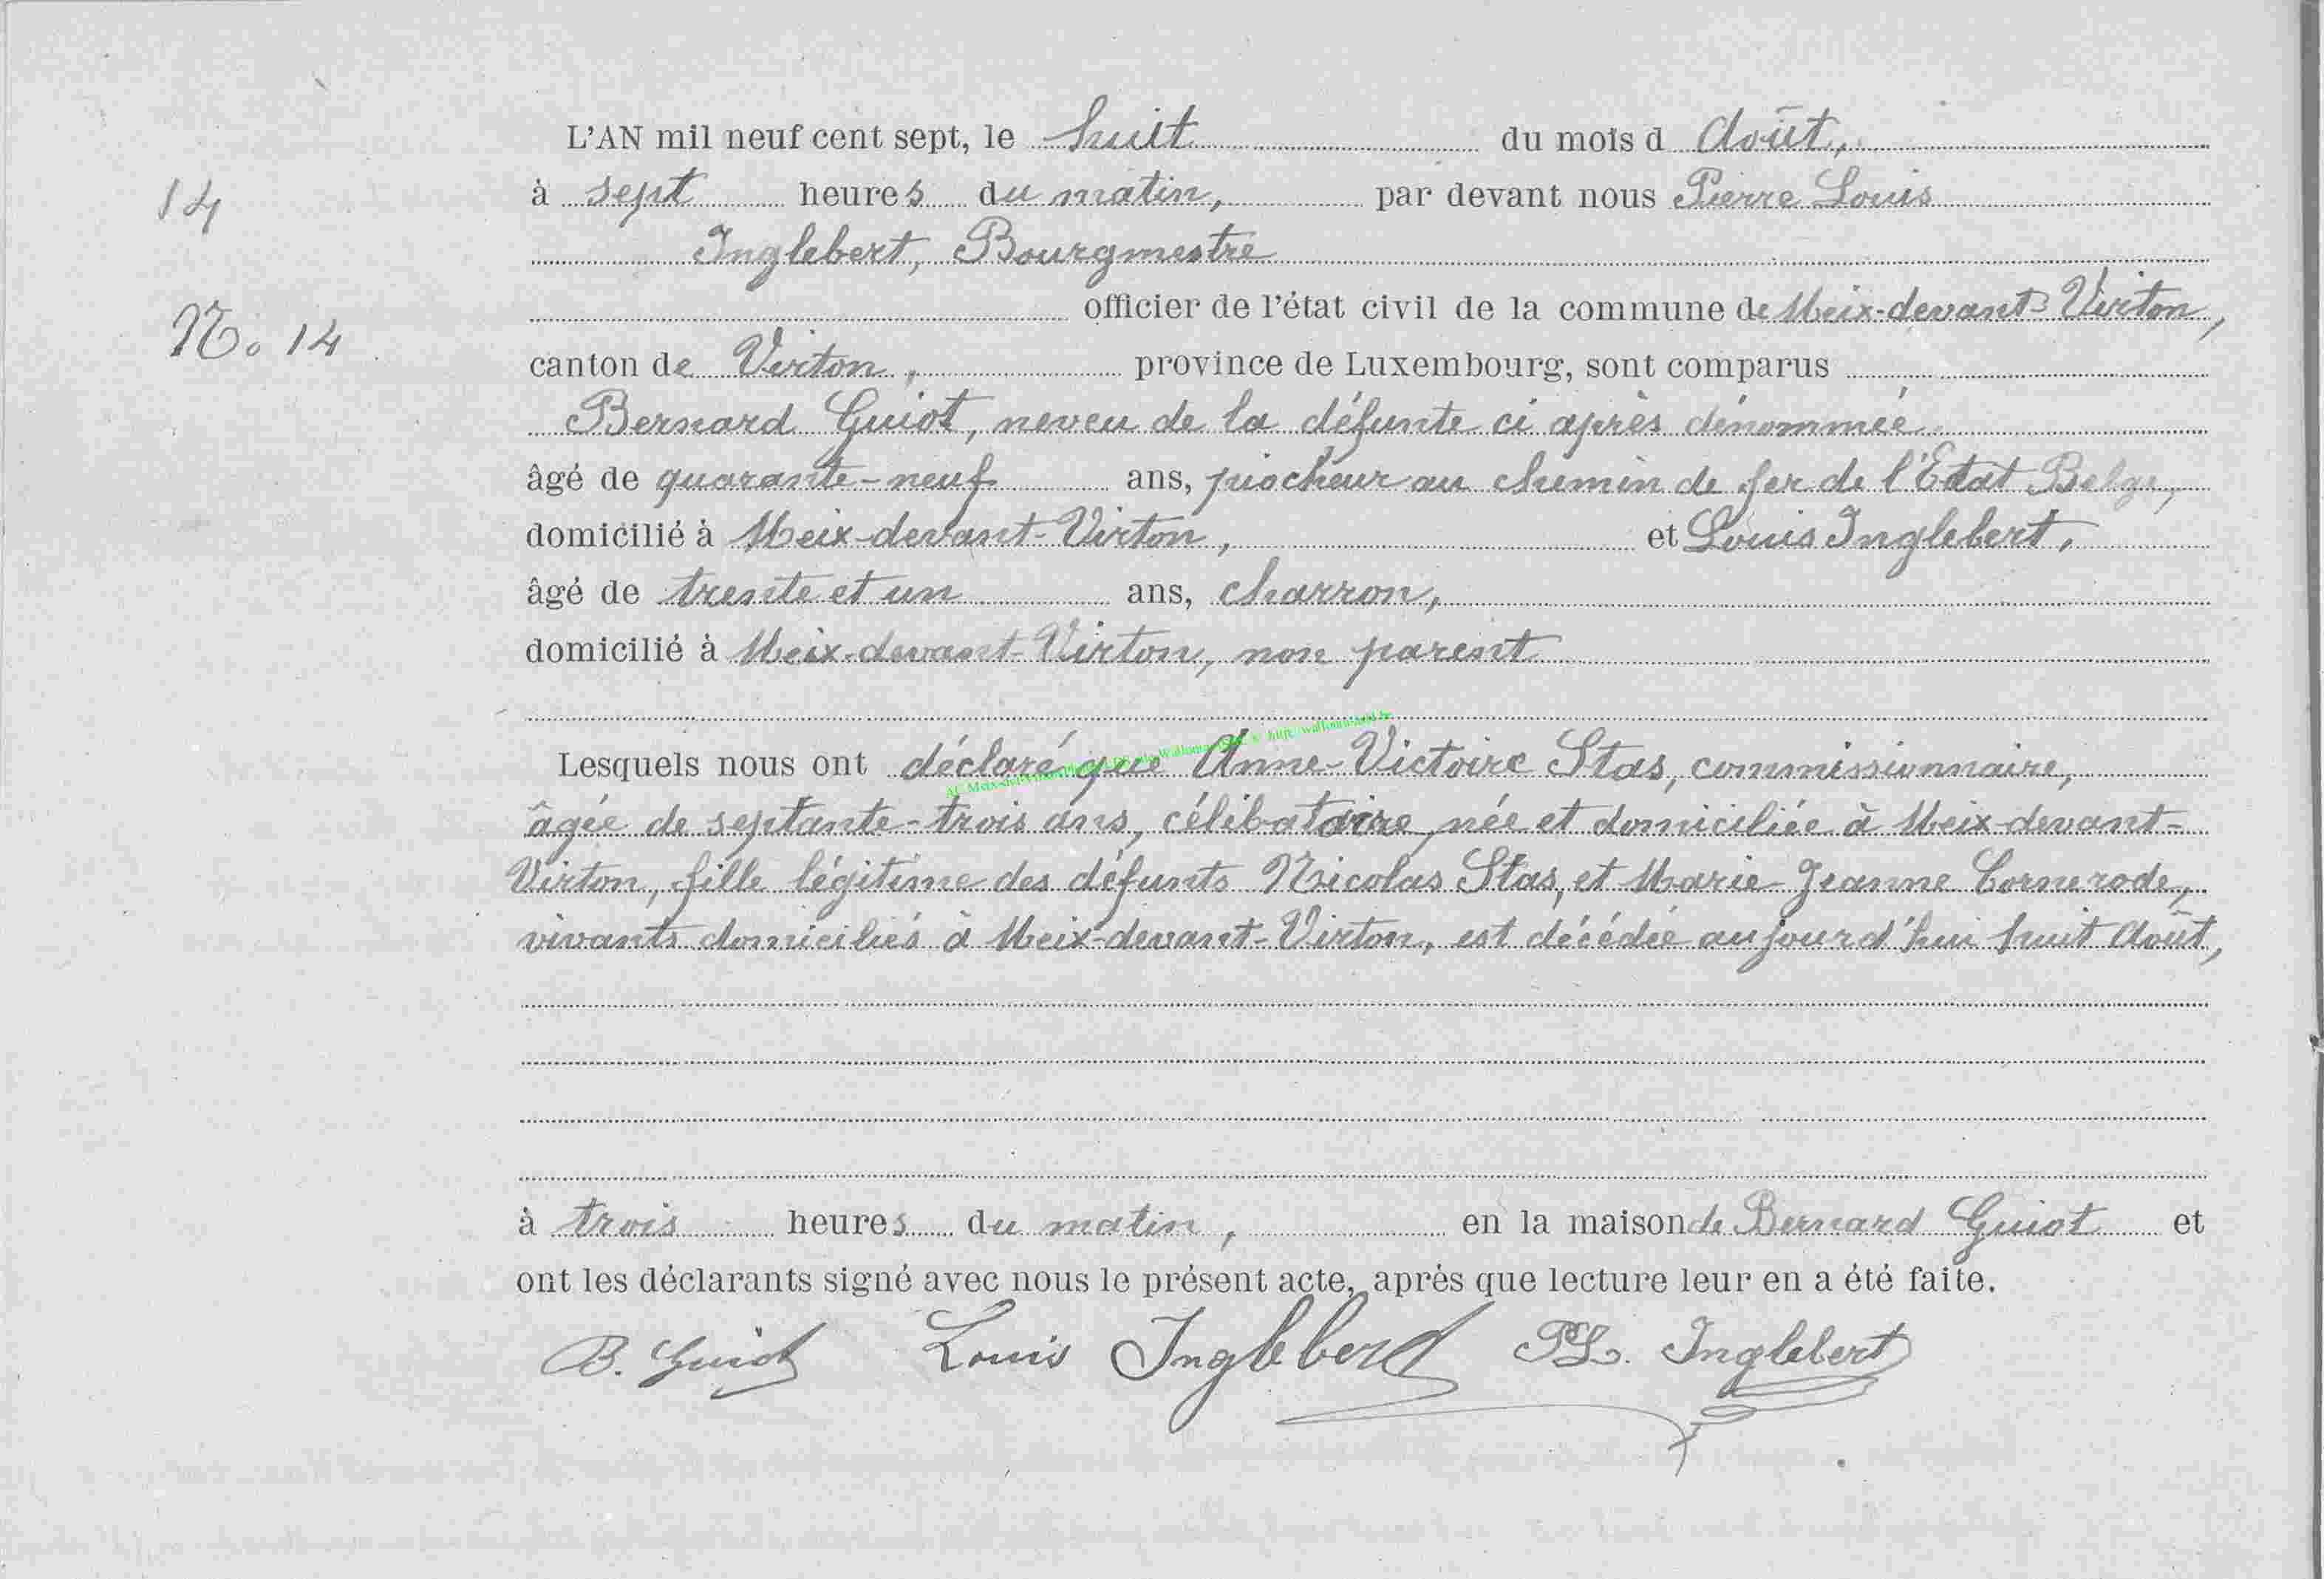 L'AN mil neuf cent sept, le huit du mois d Août,
14
à sept heures du matin, par devant nous Pierre Louis
Inglebert, Bourgmestre
officier de l'état civil de la commune de Meix-devant-Virton,
No. 14
canton de Virton, province de Luxembourg, sont comparus
Bernard Guiot, neveu de la défunte ci après dénommée
âgé de quarante-neuf ans, piocheur au chemin de fer de l'Etat Belge,
domicilié à Meix-devant-Virton, et Louis Inglebert,
âgé de trente et un ans, charron,
domicilié à Meix-devant-Virton, non parent
Lesquels nous ont déclaré que Anne-Victoire Stas, commissionnaire,
âgée de septante-trois ans, célibataire, née et domiciliée à Meix-devant-
Virton, fille légitime des défunts Nicolas Stas, et Marie-Jeanne Cornerode,
vivants domiciliés à Meix-devant-Virton, est décédée aujourd'hui huit Août,
à trois heures du matin, en la maison de Bernard Guiot et
ont les déclarants signé avec nous le présent acte, après que lecture leur en a été faite.
B. Guiot Louis Inglebert PL. Inglebert